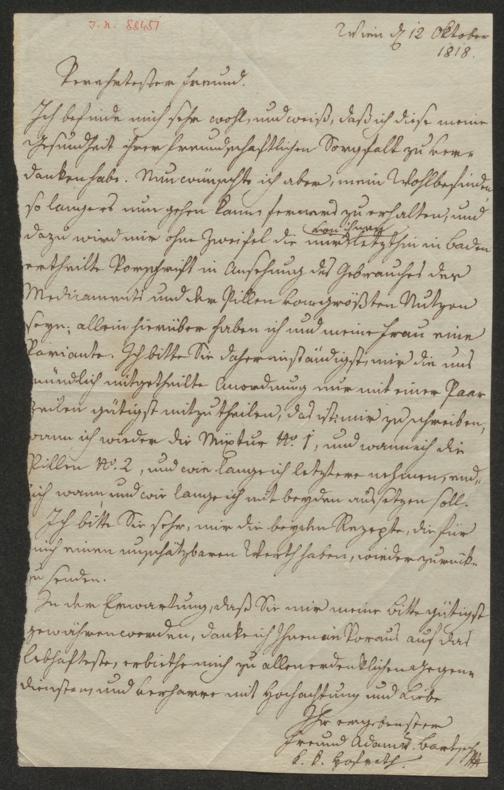 J. N. 88451
Wien d 12 Oktober
1818.
Verehrtester Freund.
Ich befinde mich sehr wohl, und weiß, daß ich diese meine
Gesundheit ihrer freundschaftlichen Sorgfalt zu ver-
danken habe. Nun wünschte ich aber, mein Wohlbefinden,
so lang es nun gehen kann, ferner zu erhalten, und
von Ihnen
dazu wird mir ohne Zweifel die mir letzthin in Baden
ertheilte Vorschrift in Ansehung des Gebrauches der
Medicamente und der Pillen vom größten Nutzen
seyn; allein hierüber haben ich und meine Frau eine
Variante. Ich bitte Sie daher inständigst, mir die uns
mündlich mitgetheilte Anordnung nur mit einer Paar
Zeilen gütigst mitzutheilen, das ist: mir zu schreiben,
wann ich wieder die Mixtur No. 1, und wann ich die
Pillen No. 2, und wie lange ich letztere nehmen, end-
lich wann und wie lange ich mit beyden aussetzen soll.
Ich bitte Sie sehr, mir die beyden Rezepte, die für
mich einen unschätzbaren Werth haben, wieder zurück-
zu senden.
In der Erwartung, daß Sie mir meine Bitte gütigst
gewähren werden, danke ich Ihnen im Voraus auf das
Lebhafteste, erbiethe mich zu allen erdenklichen Gegen-
diensten, und verharre mit Hochachtung und Liebe
Ihr ergebenster
Freund Adam v. Bartsch
k. k. Hofrath.